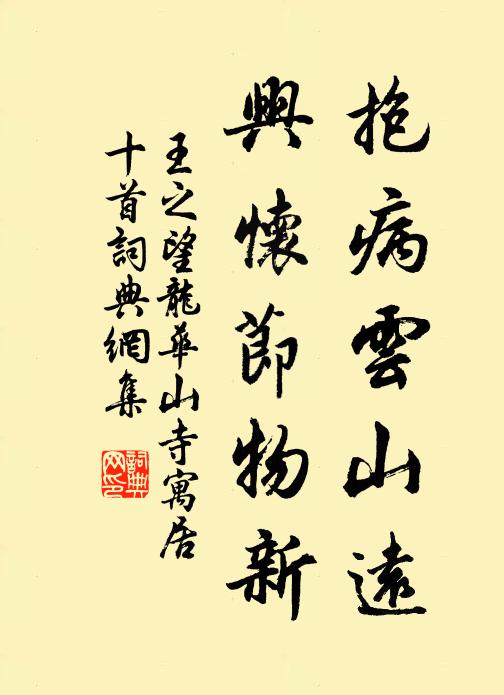 抱病雲山遠
興懷節物新
王之望龍華山寺寓居
十首詞典網集
詞典
网印